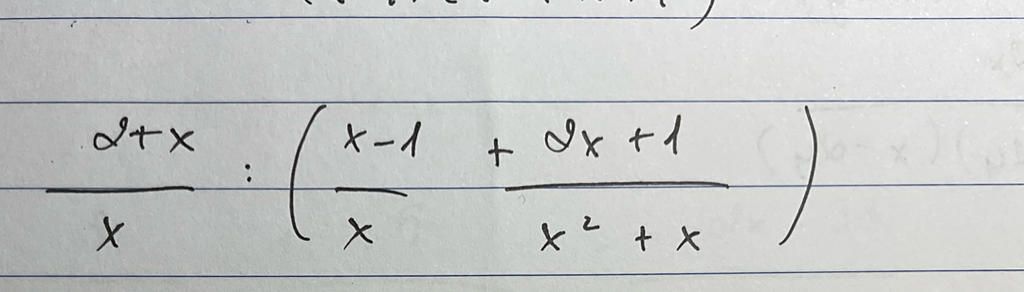 \frac{2+x}{x} : \left( \frac{x-1}{x} + \frac{2x+1}{x^2+x} \right)